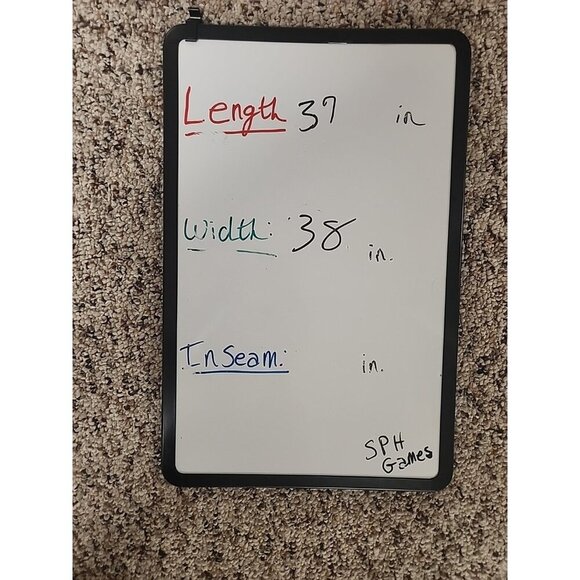 Length 37 in
Width: 38 in.
Inseam: in.
SPH
Games